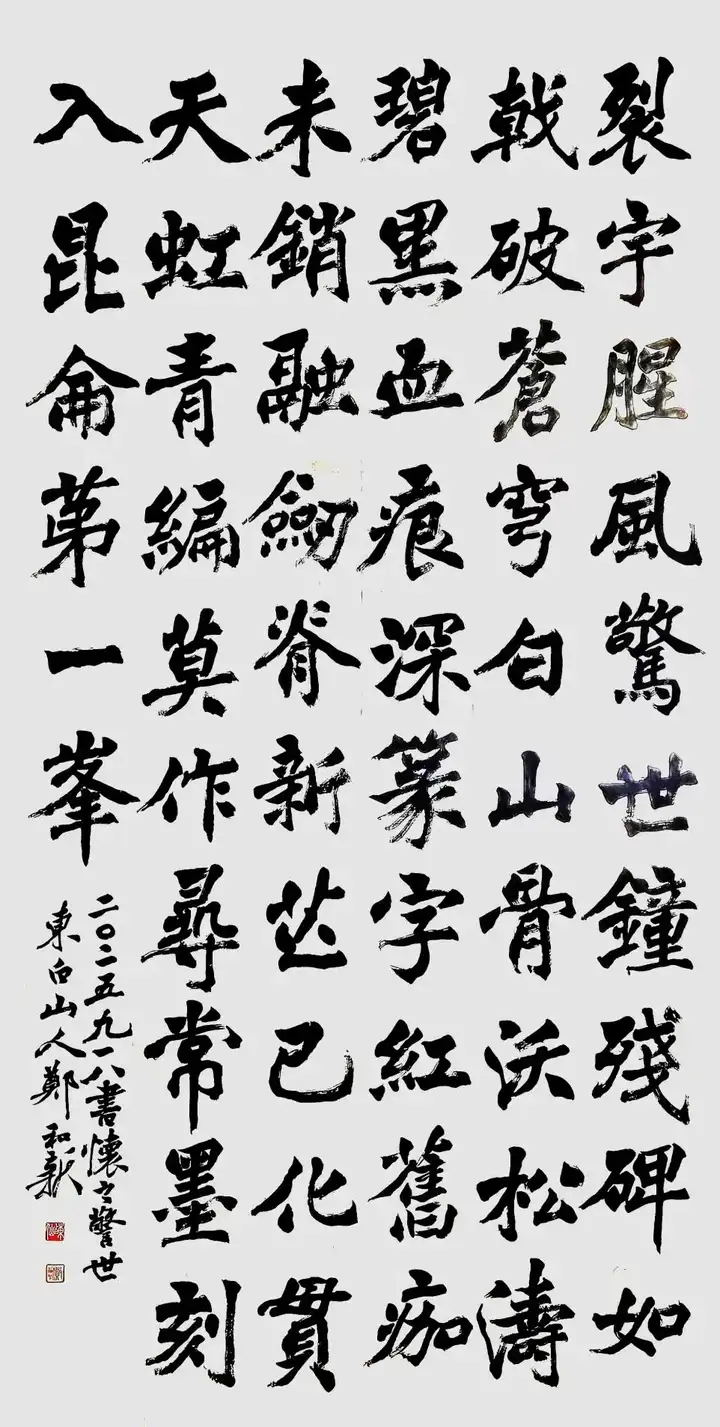 裂宇腥風驚世鐘殘碑如
戟破蒼穹白山骨沃松濤
碧黑血痕深篆字紅舊痂
未銷融劍脊新芒已化貫
天虹青編莫作尋常墨刻
入昆侖苐一峯
二〇二五九一八書懷之警世
東白山人鄭和新